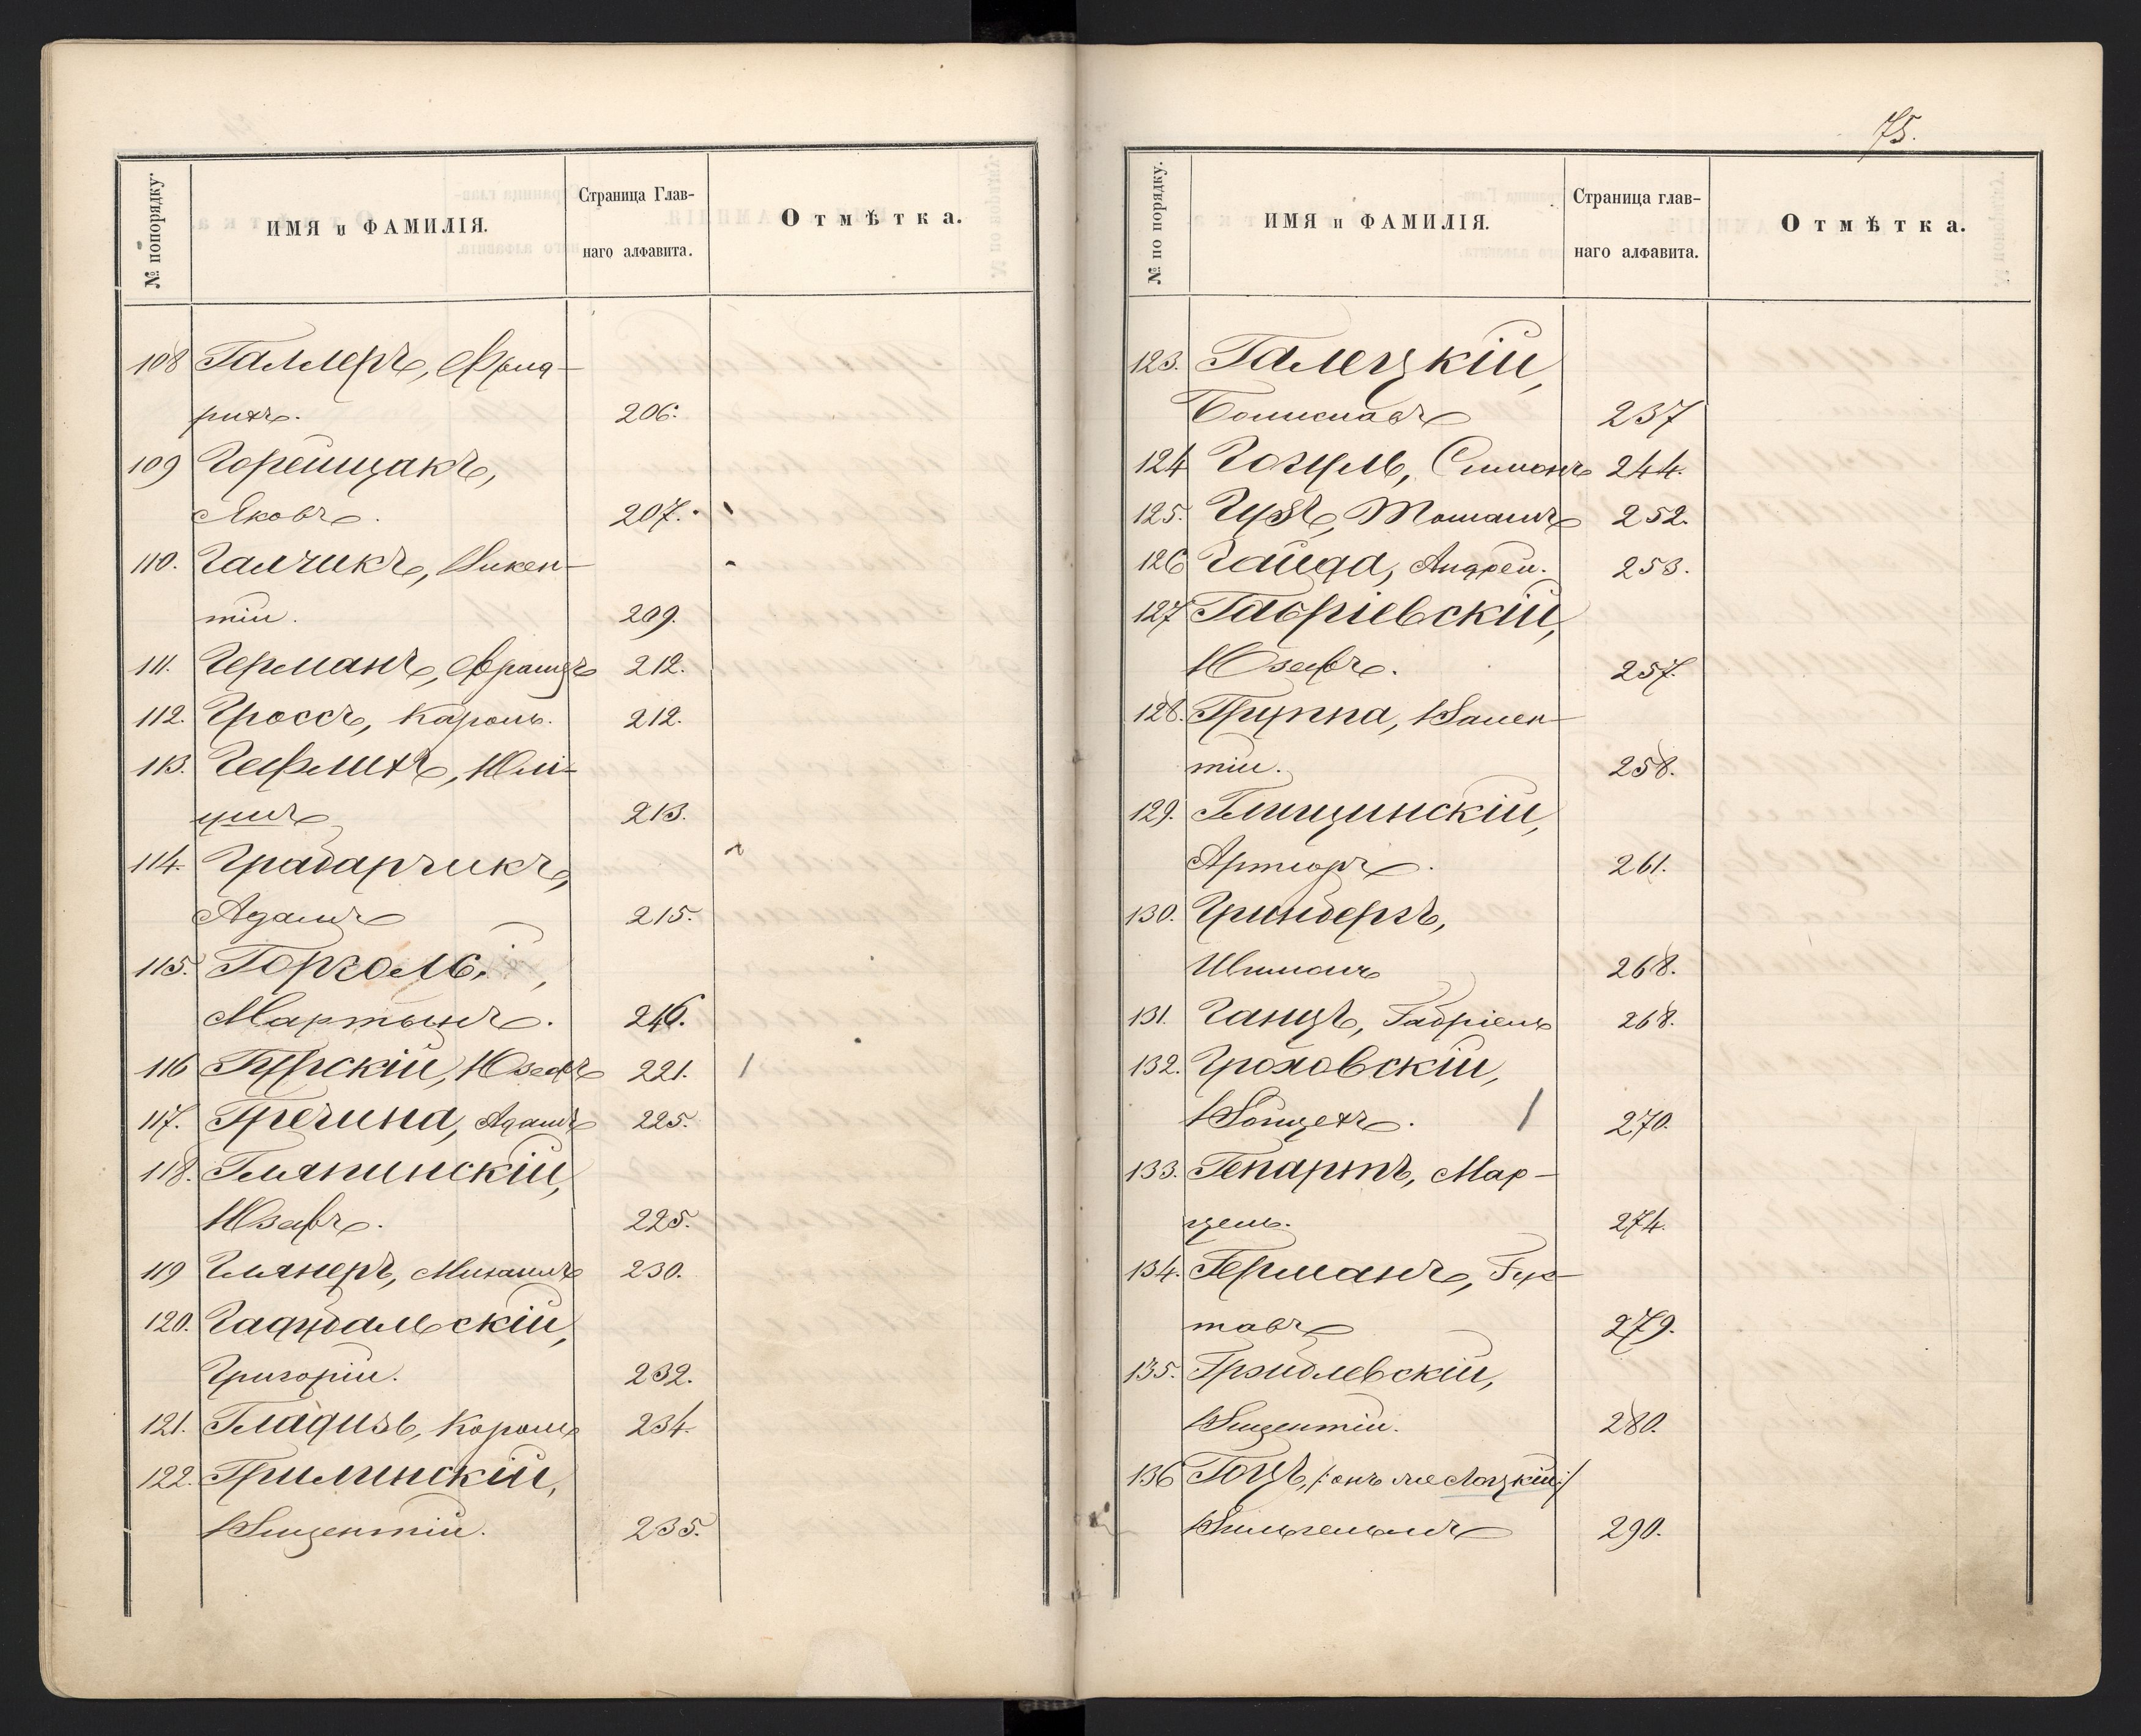 № попорядку.
ИМЯ и ФАМИЛІЯ.
Страница Глав-
наго алфавита.
Отмѣтка.
108 Галлеръ, Фрид-
рихъ. 206.
109 Горейщакъ,
Яковъ. 207.
110. Галчикъ, Викен-
тій. 209.
111. Германъ, Францъ 212.
112. Гроссъ, Кароль. 212.
113. Гефлихъ, Юлі-
ушъ 213.
114. Грабарчикъ,
Адамъ 215.
115. Горголь,
Мартынъ. 216.
116 Гурскій, Юзефъ 221.
117. Гречина, Адамъ 225.
118. Гляпинскій,
Юзефъ. 225.
119 Глянеръ, Михаилъ 230.
120. Гадубальскій,
Григорій. 232.
121. Гладизь, Кароль 234.
122. Грилинскій,
Винцентій. 235.
75.
№ по порядку.
ИМЯ и ФАМИЛІЯ.
Страница глав-
наго алфавита.
Отмѣтка.
123. Галецкій,
Болиславъ 237
124 Гоцель, Симонъ 244.
125. Гузъ, Томашъ 252.
126 Гайда, Андрей. 253.
127 Габріевскій,
Юзефъ. 257.
128. Группа, Вален-
тій. 258.
129. Глищинскій,
Артюръ. 261.
130. Гринбергъ,
Шимонъ 268.
131. Ганцъ, Габріель 268.
132. Гроховскій,
Войцехъ. 270.
133. Гепартъ, Мар-
цель. 274.
134. Германъ, Гус-
тавъ 279.
135. Грэйблевскій,
Винцентій. 280.
136 Гоцъ, /: онъ же Лоцкій :/
Вильгельмъ 290.